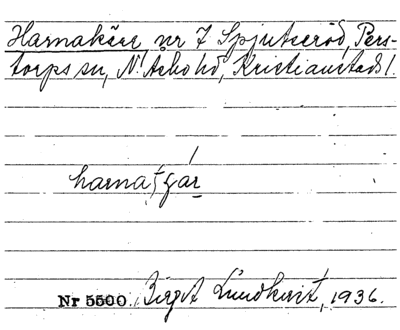 Harnakärr nr 7 Spjutseröd, Pers-
torps sn, N. Åsbo hd, Kristianstads l.
harnatʃár
Nr 5500. Birgit Lundkvist, 1936.